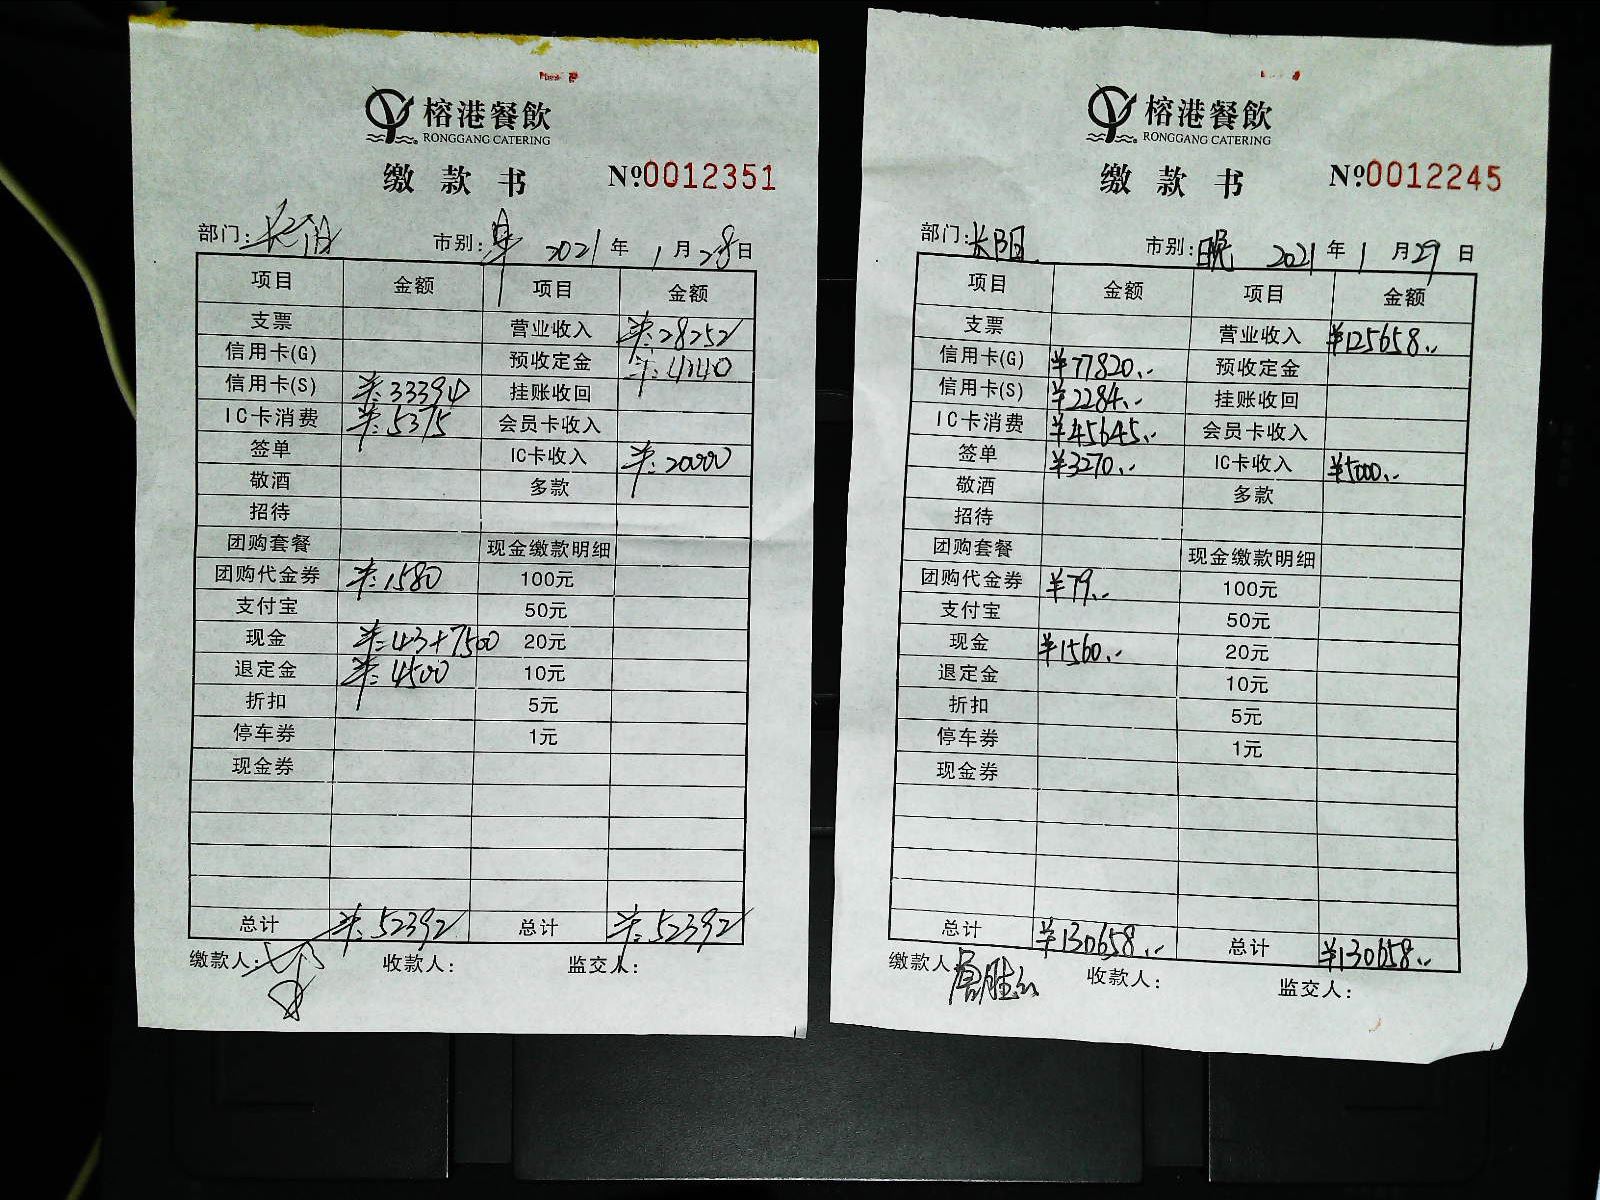 榕港餐飲
RONGGANG CATERING
缴款书 №0012351
部门: 市别: 早 2021年1月28日
项目 金额 项目 金额
支票 营业收入 ¥:28252
信用卡(G) 预收定金 ¥:4140
信用卡(S) ¥:33394 挂账收回
IC卡消费 ¥:5375 会员卡收入
签单 IC卡收入 ¥:20000
敬酒 多款
招待
团购套餐 现金缴款明细
团购代金券 ¥:1580 100元
支付宝 50元
现金 ¥:43+7500 20元
退定金 ¥:4500 10元
折扣 5元
停车券 1元
现金券
总计 ¥:52392 总计 ¥:52392
缴款人: 收款人: 监交人:
榕港餐飲
RONGGANG CATERING
缴款书 №0012245
部门:长阳 市别:晚 2021年1月29日
项目 金额 项目 金额
支票 营业收入 ¥125658..
信用卡(G) ¥77820.. 预收定金
信用卡(S) ¥2284.. 挂账收回
IC卡消费 ¥45645.. 会员卡收入
签单 ¥3270.. IC卡收入 ¥5000..
敬酒 多款
招待
团购套餐 现金缴款明细
团购代金券 ¥79.. 100元
支付宝 50元
现金 ¥1560.. 20元
退定金 10元
折扣 5元
停车券 1元
现金券
总计 ¥130658.. 总计 ¥130658..
缴款人 收款人: 监交人: